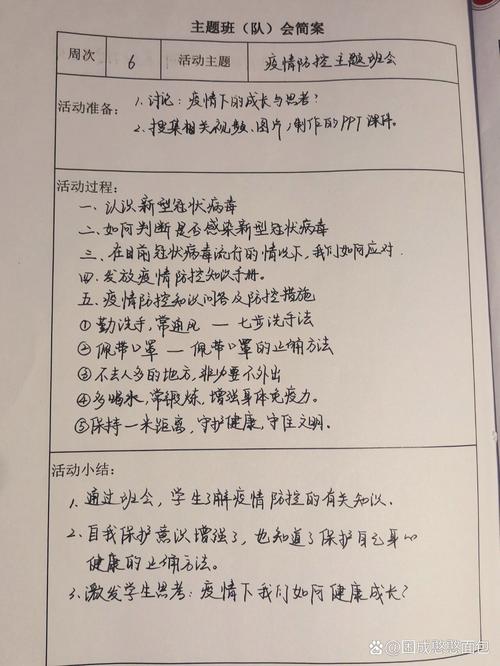 主题班（队）会简案
周次 6 活动主题 疫情防控主题班会
活动准备： 1.讨论：疫情下的成长与思考？
2.搜集相关视频、图片，制作的PPT课件。
活动过程：
一、认识新型冠状病毒
二、如何判断是否感染新型冠状病毒
三、在目前冠状病毒流行的情况下，我们如何应对.
四、发放疫情防控知识手册。
五、疫情防控知识问答及防控措施
①勤洗手，常通风 — 七步洗手法
②佩带口罩 — 佩带口罩的正确方法
③不去人多的地方，非必要不外出
④多喝水，常锻炼，增强身体免疫力。
⑤保持一米距离，守护健康，守住文明.
活动小结：
1.通过班会，学生了解疫情防控的有关知识.
2.自我保护意识增强了，也知道了保护自己身心
健康的正确方法。
3.激发学生思考：疫情下我们如何健康成长？
Bai百科 @困成憨憨面包